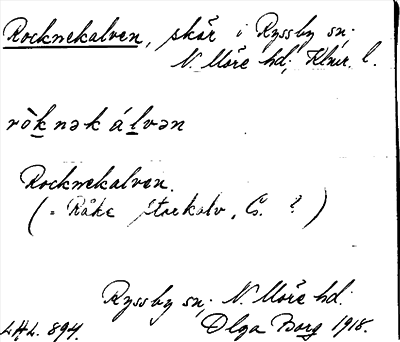 Rocknekalven, skär i Ryssby sn;
N. Möre hd; Klmr. l.
ròknək álvən
Rocknekalven.
(= Råke storkalv, G. ?)
Ryssby sn; N. Möre hd.
LHL. 894. Olga Borg 1918.